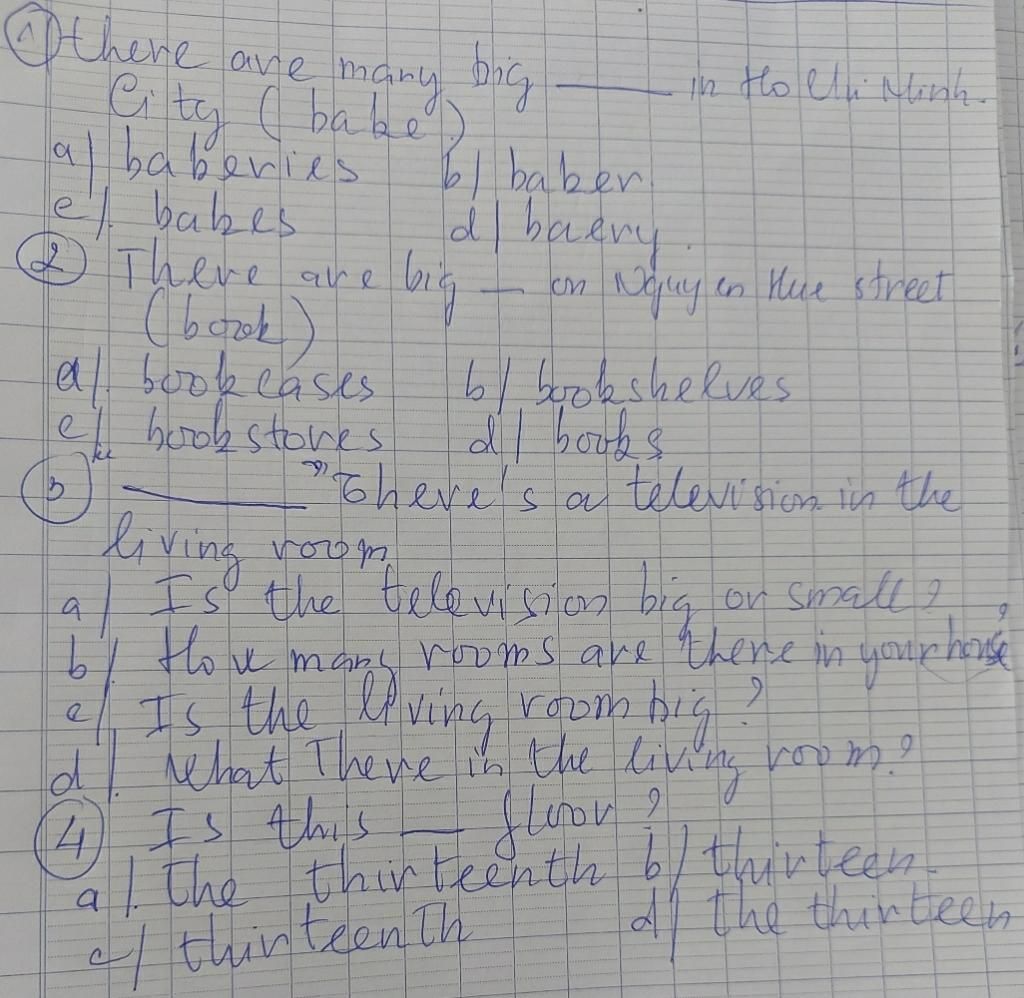 1) there are many big ____ in Ho Chi Minh
City (bake)
a) bakeries b) baker
c). bakes d) baery.
2 There are big __ on Nguyen Hue street
(book)
a). bookcases b) bookshelves
c). bookstores d) books
3) "____" There's a television in the
living room
a) Is the television big or small?
b). How many rooms are there in your house?
c) Is the living room big?
d). What There in the living room?
4 Is this __ floor?
a). The thirteenth b) thirteen.
c) thirteenTh d) The thirteen